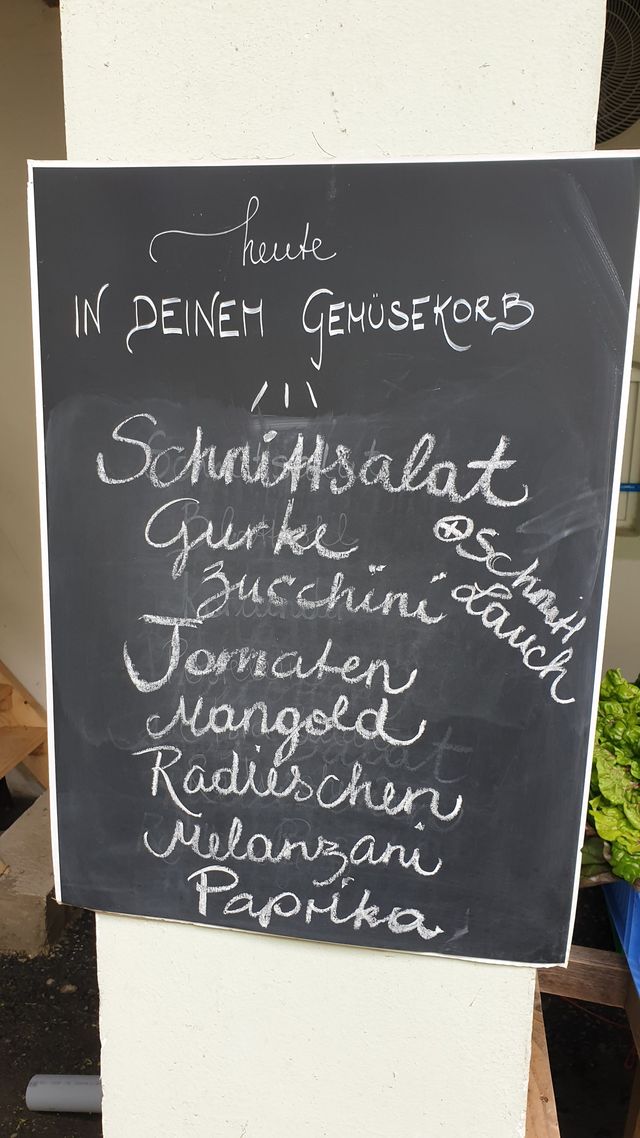 heute
IN DEINEM GEMÜSEKORB
Schnittsalat
Gurke
Zucchini
Tomaten
Mangold
Radieschen
Melanzani
Paprika
Schnitt
Lauch